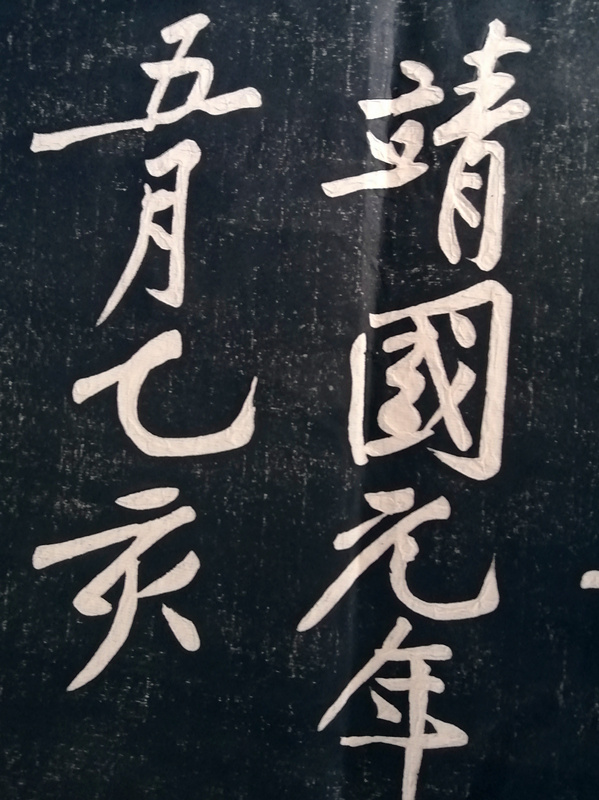 靖國元年
五月乙亥